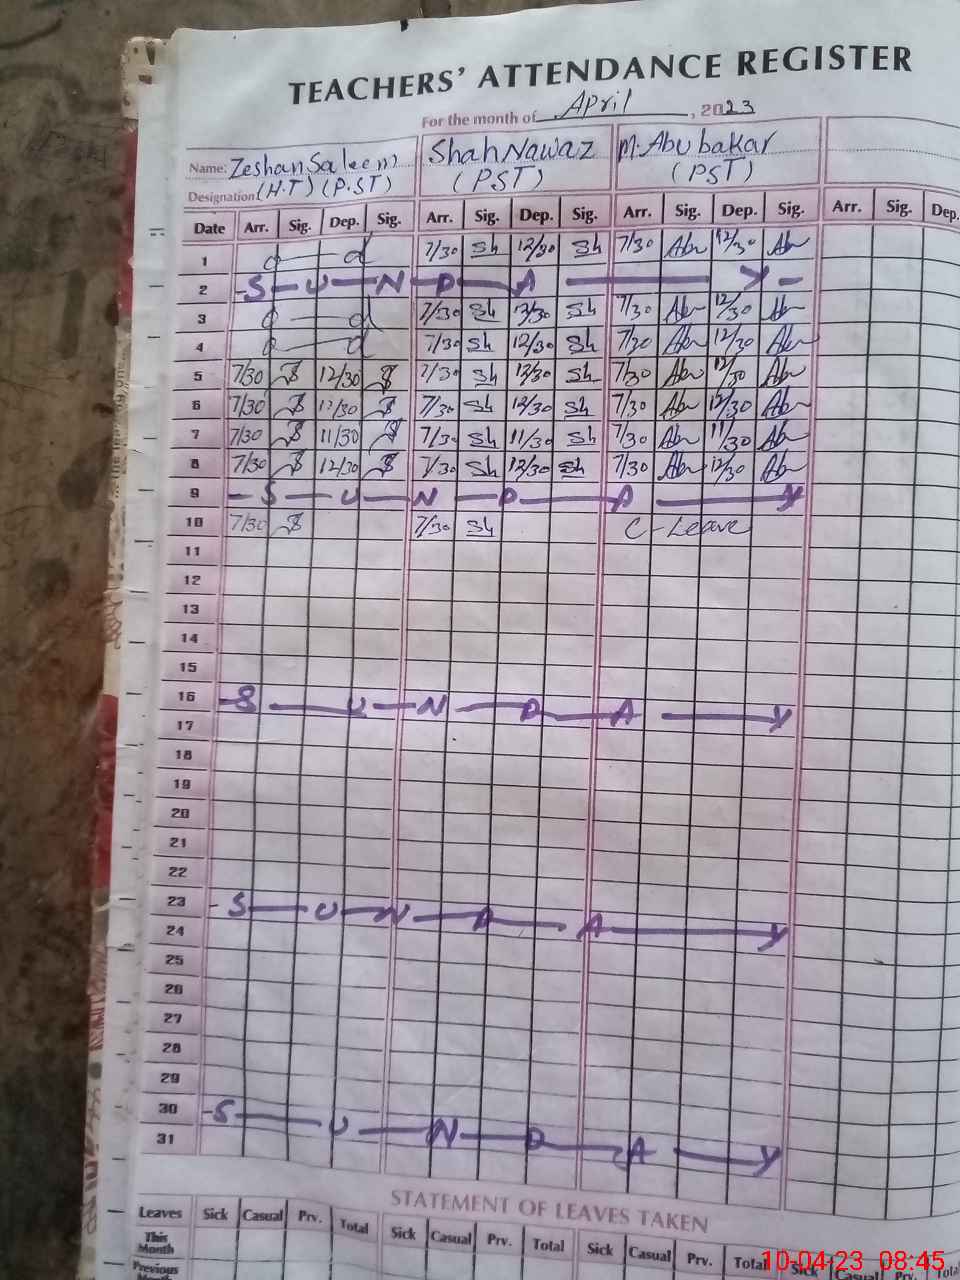 TEACHERS' ATTENDANCE REGISTER
For the month of April, 2023
Name: Zeshan Saleem Shah Nawaz M. Abubakar
Designation (H.T) (P.S.T) (PST) (PST)
Date Arr. Sig. Dep. Sig. Arr. Sig. Dep. Sig. Arr. Sig. Dep. Sig. Arr. Sig. Dep.
1 7/30 Sh 12/30 Sh 7/30 Abu 12/30 Abu
2 S U N D A Y
3 7/30 Sh 12/30 Sh 7/30 Abu 12/30 Abu
4 7/30 Sh 12/30 Sh 7/30 Abu 12/30 Abu
5 7/30 12/30 7/30 Sh 12/30 Sh 7/30 Abu 12/30 Abu
6 7/30 12/30 7/30 Sh 12/30 Sh 7/30 Abu 12/30 Abu
7 7/30 11/30 7/30 Sh 11/30 Sh 7/30 Abu 11/30 Abu
8 7/30 12/30 7/30 Sh 12/30 Sh 7/30 Abu 12/30 Abu
9 S U N D A Y
10 7/30 7/30 Sh C-Leave
11
12
13
14
15
16 S U N D A Y
17
18
19
20
21
22
23 S U N D A Y
24
25
26
27
28
29
30 S U N D A Y
31
STATEMENT OF LEAVES TAKEN
Leaves Sick Casual Prv. Total Sick Casual Prv. Total Sick Casual Prv. Total Sick Casual Prv. Total
This Month
Previous
10-04-23 08:45